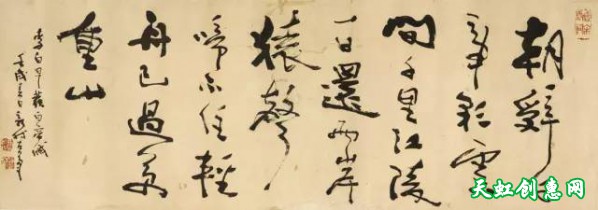 朝辭白
帝彩雲
間千里江陵
一日還兩岸
猿聲
啼不住輕
舟已過萬
重山
李白早發白帝城
壬戌夏日
天虹创惠网